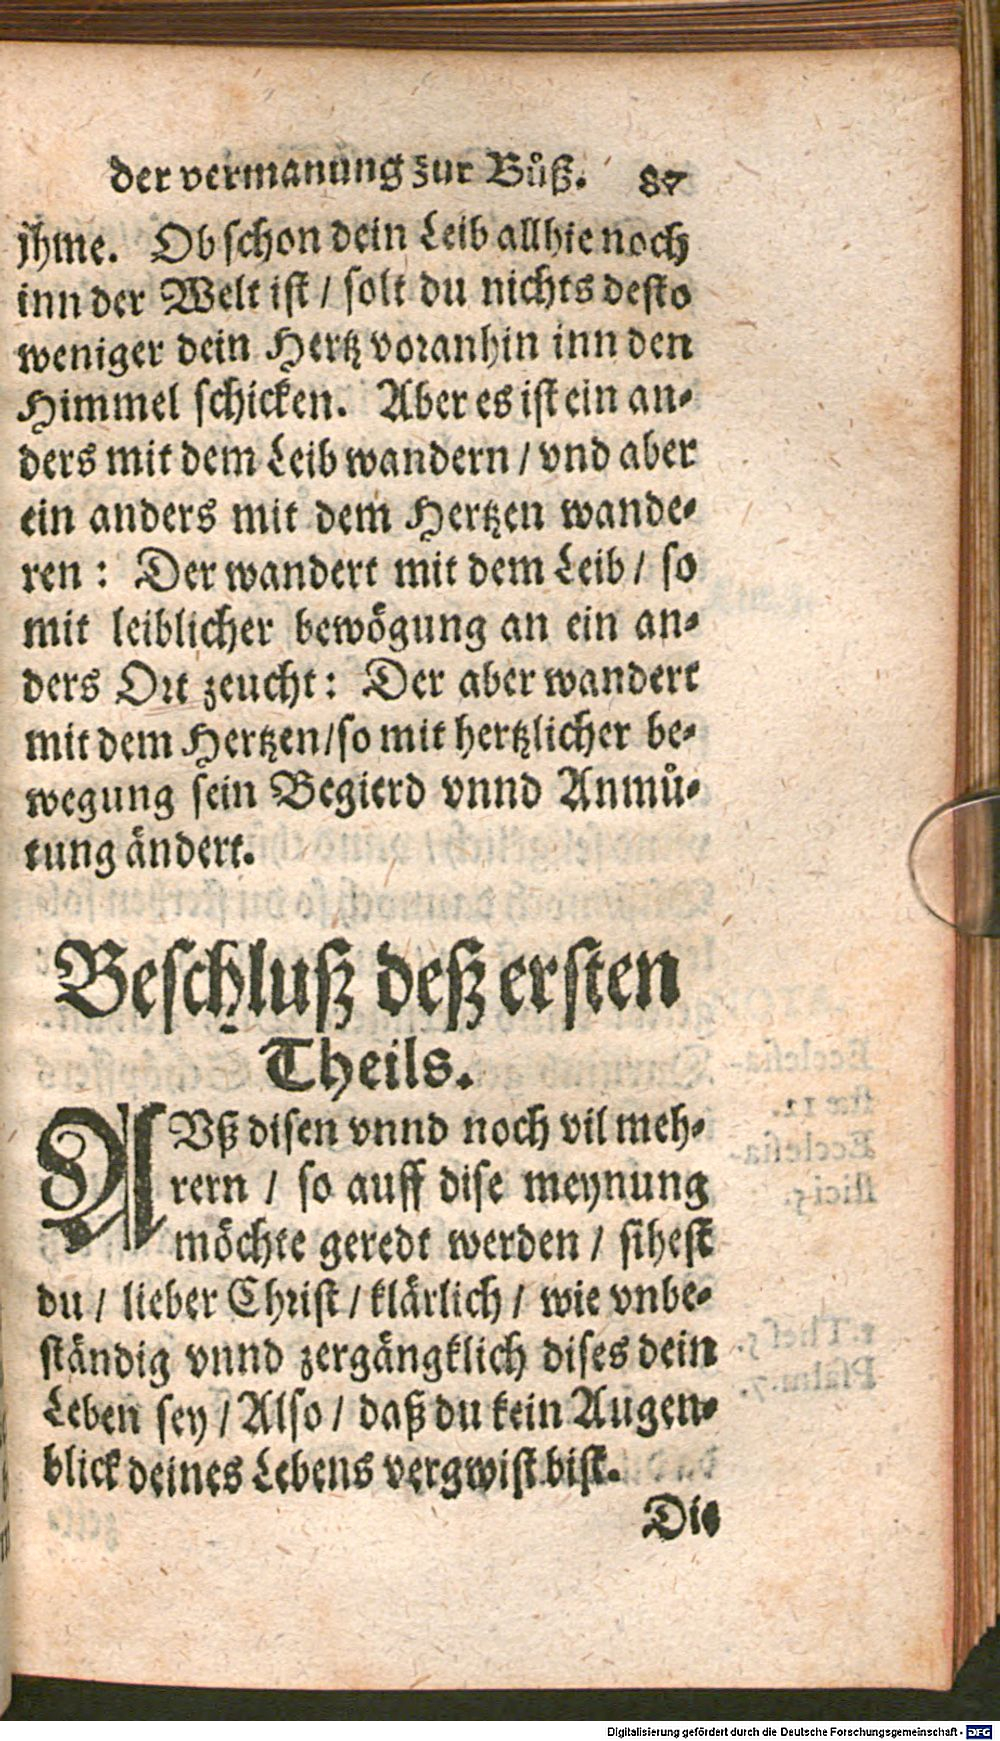 der vermanung zur Bůß. 87
jhme. Ob schon dein Leib allhie noch
inn der Welt ist / solt du nichts desto
weniger dein Hertz voranhin inn den
Himmel schicken. Aber es ist ein an-
ders mit dem Leib wandern / vnd aber
ein anders mit dem Hertzen wande-
ren : Der wandert mit dem Leib / so
mit leiblicher bewögung an ein an-
ders Ort zeucht : Der aber wandert
mit dem Hertzen / so mit hertzlicher be-
wegung sein Begierd vnnd Anmů-
tung ändert.
Beschluß deß ersten
Theils.
AVß disen vnnd noch vil meh-
rern / so auff dise meynung
möchte geredt werden / sihest
du / lieber Christ / klärlich / wie vnbe-
ständig vnnd zergängklich dises dein
Leben sey / Also / daß du kein Augen-
blick deines Lebens vergwist bist.
Die
Digitalisierung gefördert durch die Deutsche Forschungsgemeinschaft - DFG